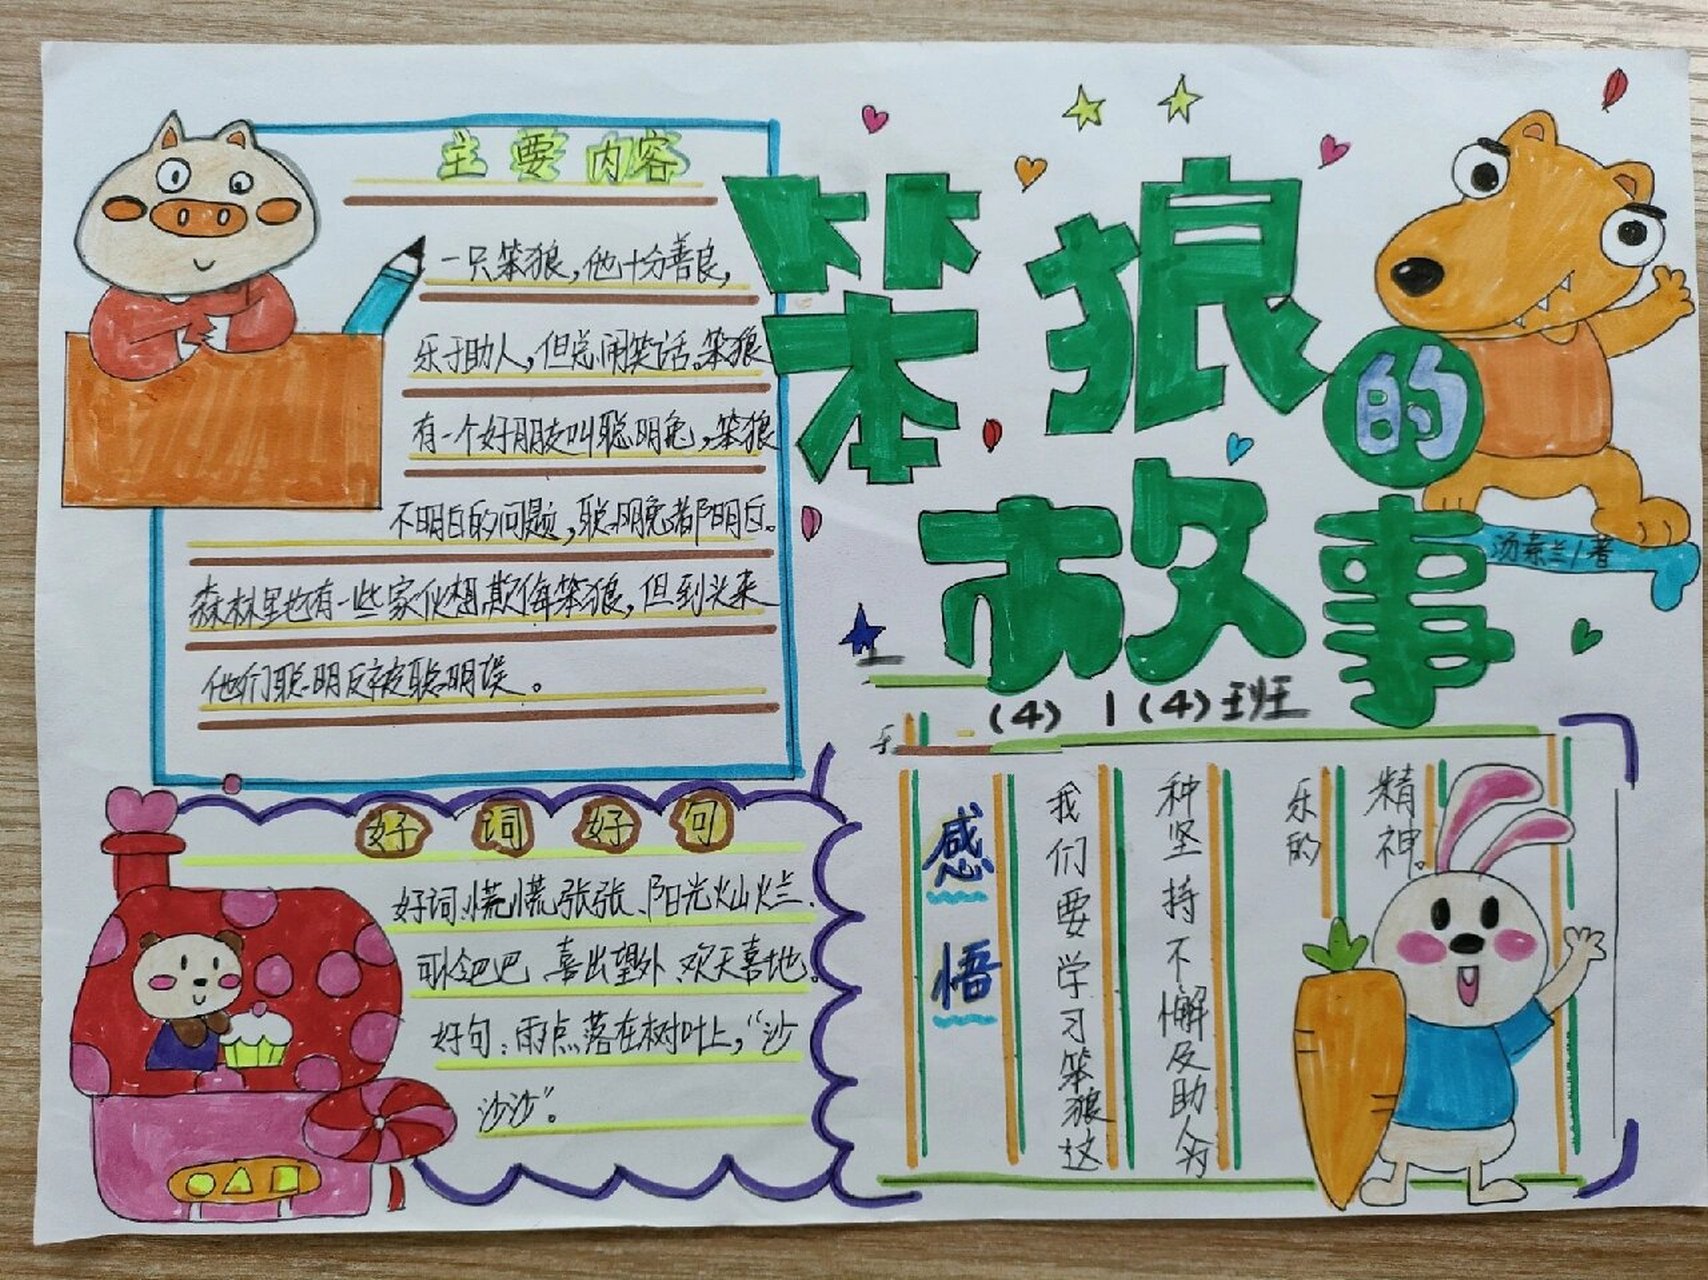 笨狼的故事
汤素兰/著
(4) 1 (4) 班
主要内容
一只笨狼，他十分善良，
乐于助人，但总闹笑话。笨狼
有一个好朋友叫聪明兔，笨狼
不明白的问题，聪明兔都明白。
森林里也有一些家伙想欺侮笨狼，但到头来
他们聪明反被聪明误。
好词好句
好词：慌慌张张、阳光灿烂、
可怜巴巴、喜出望外、欢天喜地。
好句：雨点落在树叶上，“沙
沙沙”。
感悟
我们要学习笨狼这
种坚持不懈及助人为
乐的
精神。